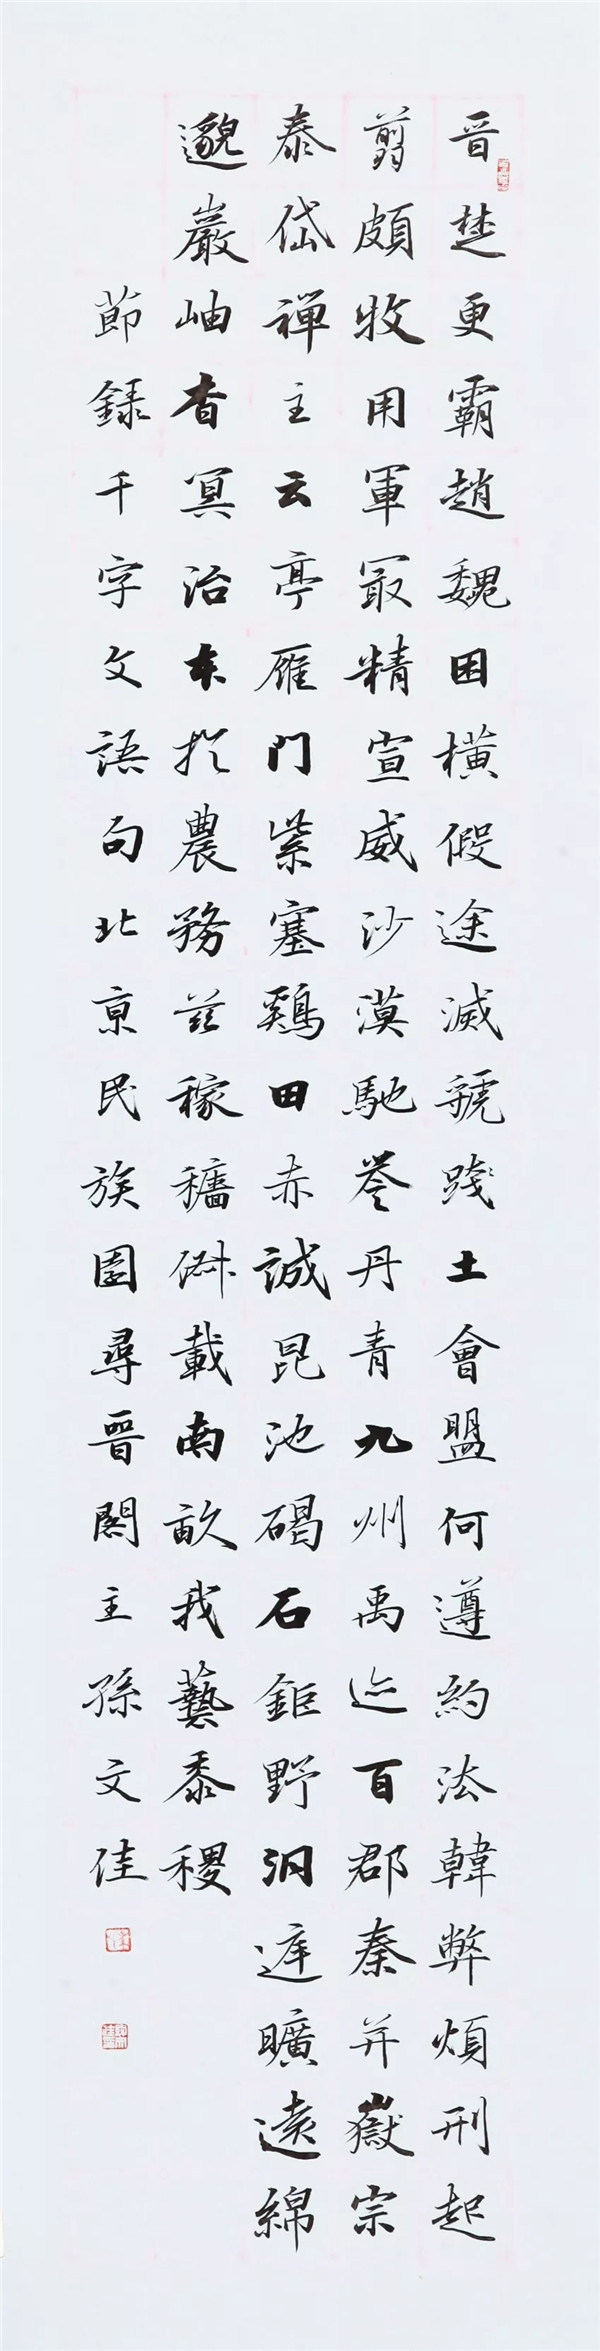 晋楚更霸趙魏困橫假途滅虢踐土會盟何遵約法韓弊煩刑起
翦頗牧用軍冣精宣威沙漠馳誉丹青九州禹迹百郡秦并嶽宗
泰岱禪主云亭雁門紫塞鷄田赤誠昆池碣石鉅野洞庭曠遠綿
邈巖岫杳冥治本於農務茲稼穡俶載南畝我藝黍稷
節錄千字文語句北京民族園尋晉閣主孫文佳